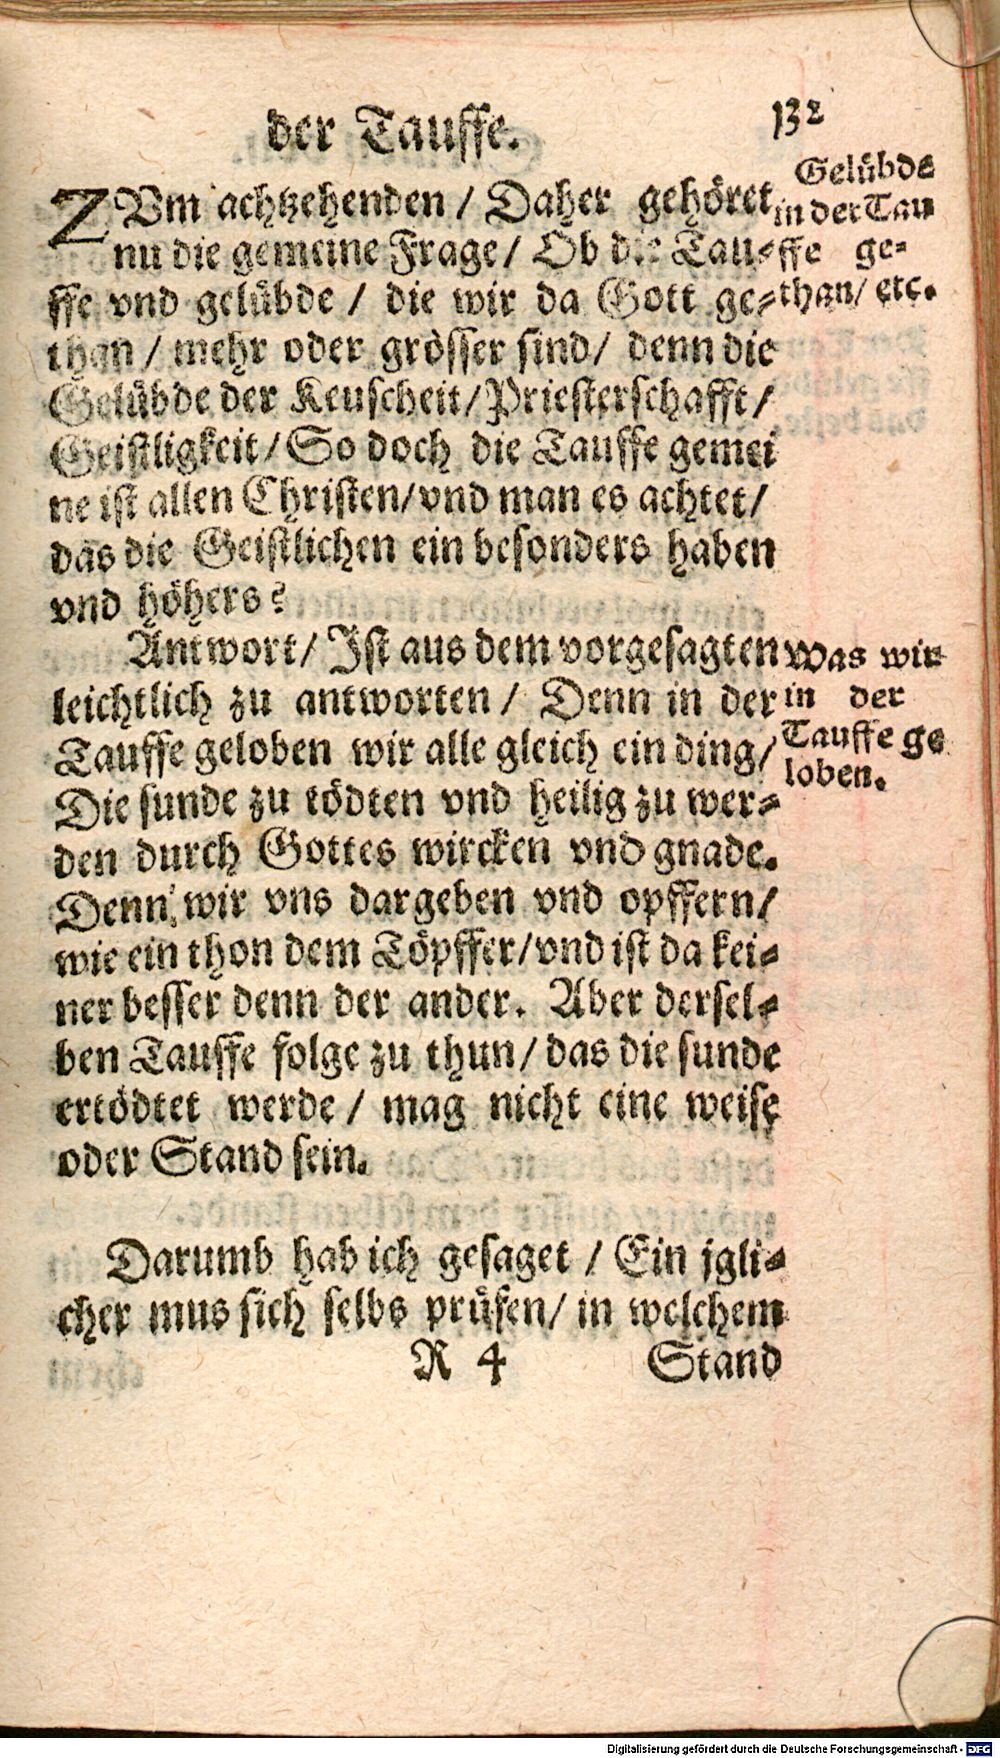 der Tauffe.
132
ZVm achtzehenden / Daher gehöret
nu die gemeine Frage / Ob die Tau-
ffe vnd gelübde / die wir da Gott ge-
than / mehr oder grösser sind / denn die
Gelübde der Keuscheit / Priesterschafft /
Geistligkeit / So doch die Tauffe gemei
ne ist allen Christen / vnd man es achtet /
das die Geistlichen ein besonders haben
vnd höhers?
Gelübde
in der Tau
ffe ge-
than / etc.
Antwort / Ist aus dem vorgesagten
leichtlich zu antworten / Denn in der
Tauffe geloben wir alle gleich ein ding /
Die sunde zu tödten vnd heilig zu wer-
den durch Gottes wircken vnd gnade.
Denn wir vns dargeben vnd opffern /
wie ein thon dem Töpffer / vnd ist da kei-
ner besser denn der ander. Aber dersel-
ben Tauffe folge zu thun / das die sunde
ertödtet werde / mag nicht eine weise
oder Stand sein.
Was wir
in der
Tauffe ge
loben.
Darumb hab ich gesaget / Ein jgli-
cher mus sich selbs prüfen / in welchem
R 4
Stand
Digitalisierung gefördert durch die Deutsche Forschungsgemeinschaft - DFG